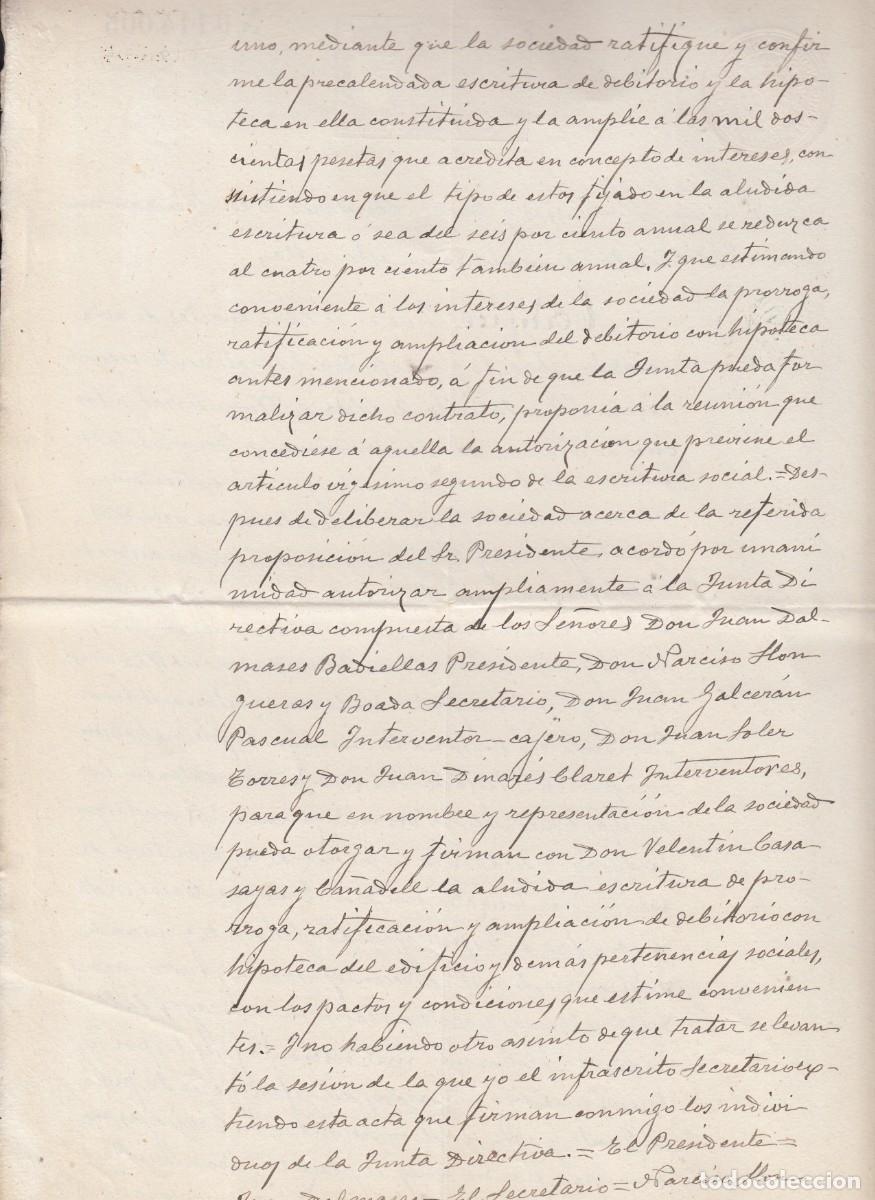 uno, mediante que la sociedad ratifique y confir
me la precalendada escritura de debitorio y la hipo-
teca en ella constituida y la amplie á las mil dos-
cientas pesetas que acredita en concepto de intereses, con
sistiendo en que el tipo de estos fijado en la aludida
escritura ó sea del seis por ciento anual se reduzca
al cuatro por ciento tambien anual. Y que estimando
conveniente á los intereses de la sociedad la prorroga,
ratificación y ampliacion del debitorio con hipoteca
antes mencionado, á fin de que la Junta pueda for
malizar dicho contrato, proponia á la reunión que
concediese á aquella la autorización que previene el
articulo vigesimo segundo de la escritura social. = Des-
pues de deliberar la sociedad acerca de la referida
proposición del Sr. Presidente, acordó por unani
midad autorizar ampliamente á la Junta Di
rectiva compuesta de los Señores Don Juan Dal-
mases Badiellas Presidente, Don Narciso Hon
gueras y Boada Secretario, Don Juan Galcerán
Pascual Interventor-cajero, Don Juan Soler
Torres y Don Juan Dinarés Claret Interventores,
para que en nombee y representación de la sociedad
pueda otorgar y firman con Don Velentin Casa
sayas y Cañadell la aludida escritura de pro-
rroga, ratificación y ampliación de debitorio con
hipoteca del edificio y demás pertenencias sociales,
con los pactos y condiciones que estime convenien
tes. = Y no habiendo otro asunto de que tratar se levan
tó la sesión de la que yo el infrascrito Secretario ex-
tiendo esta acta que firman conmigo los indivi
duos de la Junta Directiva. = El Presidente =
Juan Dalmases = El Secretario = Narciso Hon-
todocoleccion